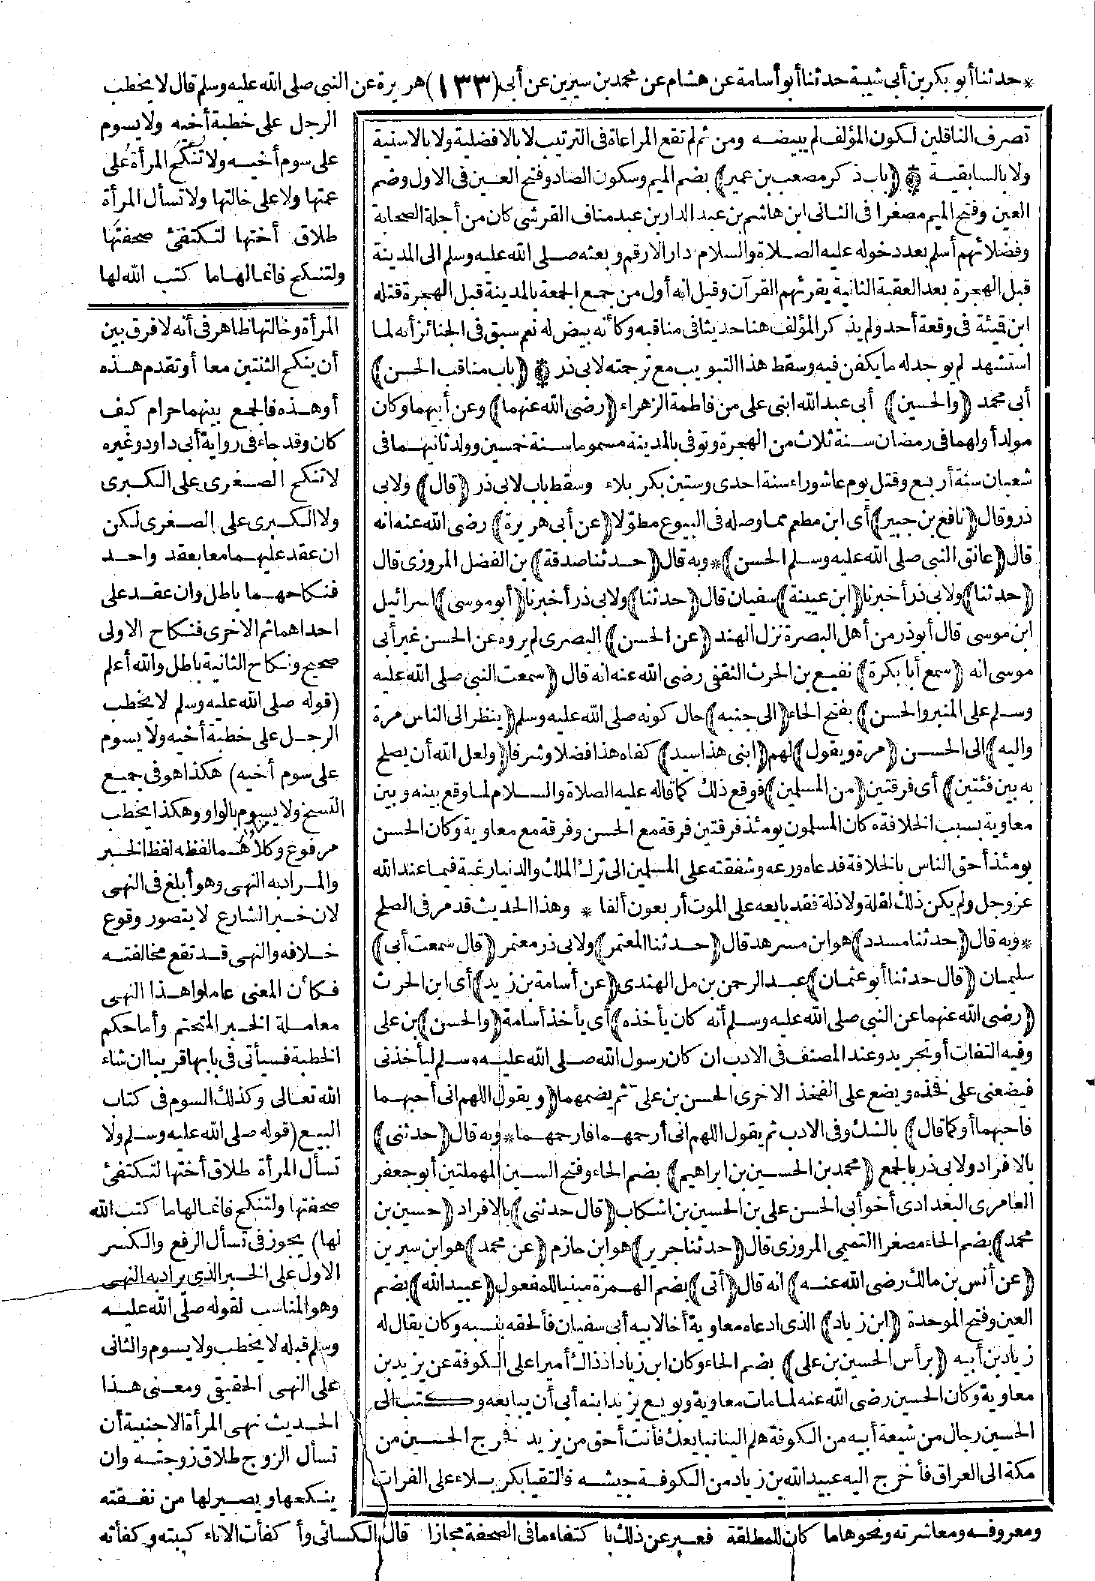 * حدثنا أبو بكر بن أبي شيبة حدثنا أبو أسامة عن هشام عن محمد بن سيرين عن أبي (١٣٣) هريرة عن النبي صلى الله عليه وسلم قال لا يخطب
الرجل على خطبة أخيه ولا يسوم
على سوم أخيه ولا تنكح المرأة على
عمتها ولا على خالتها ولا تسأل المرأة
طلاق أختها لتكتفئ صحفتها
ولتنكح فانما لها ما كتب الله لها
تصرف الناقلين لكون المؤلف لم يبيضه ومن ثم لم تقع المراعاة في الترتيب لا بالافضلية ولا بالاسنية
ولا بالسابقية * (باب ذكر مصعب بن عمير) بضم الميم وسكون الصاد وفتح العين في الاول وضم
العين وفتح الميم مصغرا في الثاني ابن هاشم بن عبد الدار بن عبد مناف القرشي كان من أجلة الصحابة
وفضلائهم أسلم بعد دخوله عليه الصلاة والسلام دار الارقم وبعثه صلى الله عليه وسلم الى المدينة
قبل الهجرة بعد العقبة الثانية يقرئهم القرآن وقيل انه أول من جمع الجمعة بالمدينة قبل الهجرة قتله
ابن قيئة في وقعة أحد ولم يذكر المؤلف هنا حديثا في مناقبه وكأنه بيض له نعم سبق في الجنائز أنه لما
استشهد لم يوجد له ما يكفن فيه وسقط هذا التبويب مع ترجمته لابي ذر * (باب مناقب الحسن)
أبي محمد (والحسين) أبي عبد الله ابني علي من فاطمة الزهراء (رضي الله عنهما) وعن أبيهما وكان
مولد أولهما في رمضان سنة ثلاث من الهجرة وتوفي بالمدينة مسموما سنة خمسين وولد ثانيهما في
شعبان سنة أربع وقتل يوم عاشوراء سنة احدى وستين بكربلاء وسقط باب لابي ذر (قال) ولابي
ذر وقال (نافع بن جبير) أي ابن مطعم مما وصله في البيوع مطوّلا (عن أبي هريرة) رضي الله عنه انه
قال (عانق النبي صلى الله عليه وسلم الحسن) * وبه قال (حدثنا صدقة) بن الفضل المروزي قال
(حدثنا) ولابي ذر أخبرنا (ابن عيينة) سفيان قال (حدثنا) ولابي ذر أخبرنا (أبو موسى) اسرائيل
ابن موسى قال أبو ذر من أهل البصرة نزل الهند (عن الحسن) البصري لم يروه عن الحسن غير أبي
موسى انه (سمع أبا بكرة) نفيع بن الحرث الثقفي رضي الله عنه انه قال (سمعت النبي صلى الله عليه
وسلم على المنبر والحسن) بفتح الحاء (الى جنبه) حال كونه صلى الله عليه وسلم (ينظر الى الناس مرة
واليه) الى الحسن (مرة ويقول) لهم (ابني هذا سيد) كفاه هذا فضلا وشرفا (ولعل الله أن يصلح
به بين فئتين) أي فرقتين (من المسلمين) فوقع ذلك كما قاله عليه الصلاة والسلام لما وقع بينه وبين
معاوية بسبب الخلافة كان المسلمون يومئذ فرقتين فرقة مع الحسن وفرقة مع معاوية وكان الحسن
يومئذ أحق الناس بالخلافة فدعاه ورعه وشفقته على المسلمين الى ترك الملك والدنيا رغبة فيما عند الله
عز وجل ولم يكن ذلك لقلة ولا ذلة فقد بايعه على الموت أربعون ألفا * وهذا الحديث قد مر في الصلح
* وبه قال (حدثنا مسدد) هو ابن مسرهد قال (حدثنا المعتمر) ولابي ذر معتمر (قال سمعت أبي)
سليمان (قال حدثنا أبو عثمان) عبد الرحمن بن مل الهندي (عن أسامة بن زيد) أي ابن الحرث
(رضي الله عنهما عن النبي صلى الله عليه وسلم أنه كان يأخذه) أي يأخذ أسامة (والحسن) بن علي
وفيه التفات أو تجريد وعند المصنف في الادب ان كان رسول الله صلى الله عليه وسلم ليأخذني
فيضعني على فخذه ويضع على الفخذ الاخرى الحسن بن علي ثم يضمهما (ويقول اللهم اني أحبهما
فاحبهما أو كما قال) بالشك وفي الادب ثم يقول اللهم اني أرحمهما فارحمهما * وبه قال (حدثني)
بالافراد ولابي ذر بالجمع (محمد بن الحسين بن ابراهيم) بضم الحاء وفتح السين المهملتين أبو جعفر
العامري البغدادي أخو أبي الحسن علي بن الحسين بن اشكاب (قال حدثني) بالافراد (حسين بن
محمد) بضم الحاء مصغرا التميمي المروزي قال (حدثنا جرير) هو ابن حازم (عن محمد) هو ابن سيرين
(عن أنس بن مالك رضي الله عنه) انه قال (أتي) بضم الهمزة مبنيا للمفعول (عبيد الله) بضم
العين وفتح الموحدة (ابن زياد) الذي ادعاه معاوية أخا لابيه أبي سفيان فألحقه بنسبه وكان يقال له
زياد بن أبيه (برأس الحسين بن علي) بضم الحاء وكان ابن زياد اذ ذاك أميرا على الكوفة عن يزيد بن
معاوية وكان الحسين رضي الله عنه لما مات معاوية وبويع يزيد ابنه أبى أن يبايعه وكتب الى
الحسين رجال من شيعة أبيه من الكوفة هلم الينا نبايعك فأنت أحق من يزيد فخرج الحسين من
مكة الى العراق فأخرج اليه عبيد الله بن زياد من الكوفة جيشه فالتقيا بكربلاء على الفرات
المرأة وخالتها ظاهر في أنه لا فرق بين
أن ينكح الثنتين معا أو تقدم هذه
أو هذه فالجمع بينهما حرام كيف
كان وقد جاء في رواية أبي داود وغيره
لا تنكح الصغرى على الكبرى
ولا الكبرى على الصغرى لكن
ان عقد عليهما معا بعقد واحد
فنكاحهما باطل وان عقد على
احداهما ثم الاخرى فنكاح الاولى
صحيح ونكاح الثانية باطل والله أعلم
(قوله صلى الله عليه وسلم لا يخطب
الرجل على خطبة أخيه ولا يسوم
على سوم أخيه) هكذا هو في جميع
النسخ ولا يسوم بالواو وهكذا يخطب
مرفوع وكلاهما لفظه لفظ الخبر
والمراد به النهي وهو أبلغ في النهي
لان خبر الشارع لا يتصور وقوع
خلافه والنهي قد تقع مخالفته
فكأن المعنى عاملوا هذا النهي
معاملة الخبر المتحتم وأما حكم
الخطبة فسيأتي في بابها قريبا ان شاء
الله تعالى وكذلك السوم في كتاب
البيع (قوله صلى الله عليه وسلم ولا
تسأل المرأة طلاق أختها لتكتفئ
صحفتها ولتنكح فانما لها ما كتب الله
لها) يجوز في تسأل الرفع والكسر
الاول على الخبر الذي يراد به النهي
وهو المناسب لقوله صلى الله عليه
وسلم قبله لا يخطب ولا يسوم والثاني
على النهي الحقيقي ومعنى هذا
الحديث نهي المرأة الاجنبية أن
تسأل الزوج طلاق زوجته وان
ينكحها ويصير لها من نفقته
ومعروفه ومعاشرته ونحوها ما كان للمطلقة فعبر عن ذلك باكتفاء ما في الصحفة مجازا قال الكسائي وأكفأت الاناء كببته وكفأته